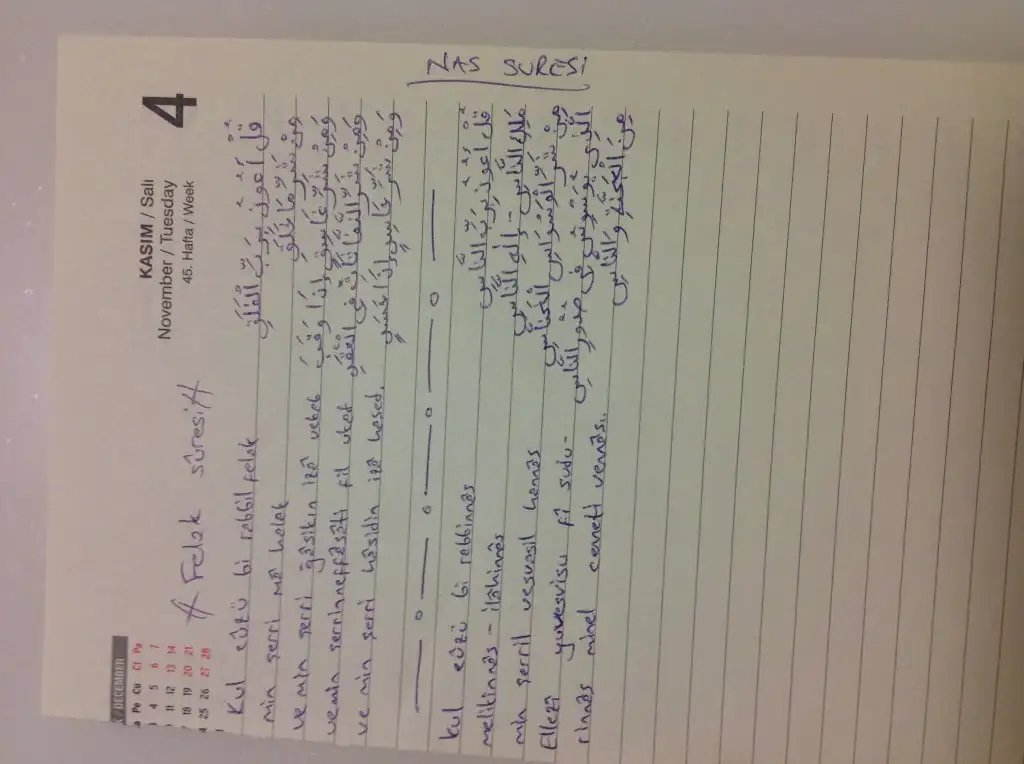 / DECEMBER
Pe Cu Ct Pa
4 5 6 7
11 12 13 14
18 19 20 21
25 26 27 28
KASIM / Salı
November / Tuesday
45. Hafta / Week
4
Felak sûresi
Kul eûzü bi rabbil felak قُلْ أَعُوذُ بِرَبِّ الْفَلَقِ
min şerri mâ halak مِنْ شَرِّ مَا خَلَقَ
ve min şerri gâsikin izâ vekab وَمِنْ شَرِّ غَاسِقٍ إِذَا وَقَبَ
vemin şerrinneffâsâti fil ukad وَمِنْ شَرِّ النَّفَّاثَاتِ فِي الْعُقَدِ
ve min şerri hâsidin izâ hased. وَمِنْ شَرِّ حَاسِدٍ إِذَا حَسَدَ
NAS SURESİ
kul eûzü bi rabbinnâs قُلْ أَعُوذُ بِرَبِّ النَّاسِ
melikinnâs - ilâhinnâs مَلِكِ النَّاسِ - إِلَٰهِ النَّاسِ
min şerril vesvasil hannâs مِنْ شَرِّ الْوَسْوَاسِ الْخَنَّاسِ
Ellezî yuvesvisu fî sudu- الَّذِي يُوَسْوِسُ فِي صُدُورِ النَّاسِ
rinnâs minel cenneti vennâs.. مِنَ الْجِنَّةِ وَالنَّاسِ